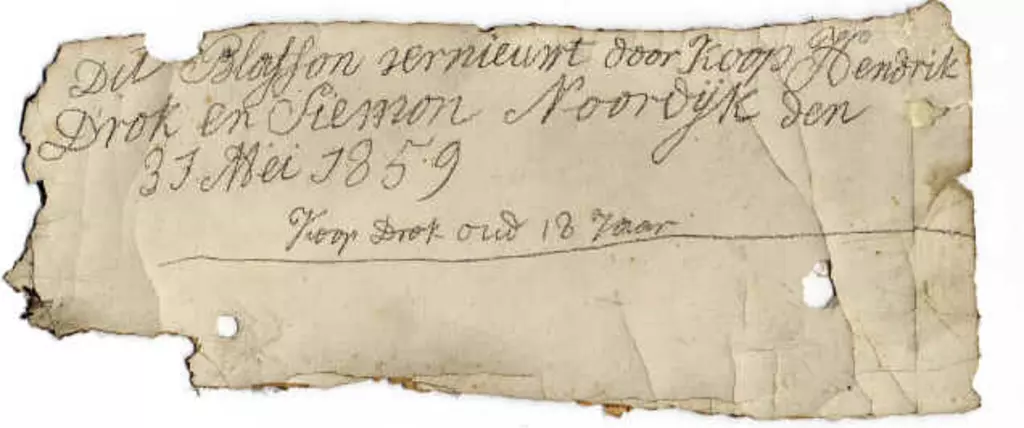 Dit Blasson vernieuwt door Koop Hendrik
Drok en Siemon Noordijk den
31 Mei 1859
Koop Drok oud 18 Jaar